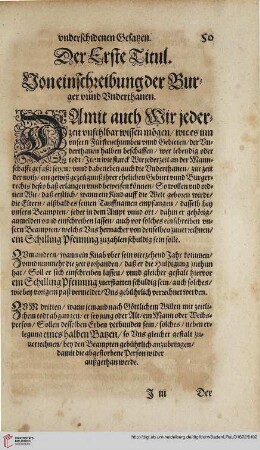 vnderschidenen Gesatzen.
50
Der Erste Titul.
Von einschreibung der Bur-
ger vnnd Vnderthanen.
DAmit auch Wir jeder-
zeit vnfehlbar wissen mögen, wie es vmb
vnsern Fürstenthumben vnnd Gebieten, der Vn-
derthanen halben beschaffen, wer lebendig oder
todt: Jtem wie starck Wir jederzeit an der Mann-
schafft gefaßt seyen: vnd dabeneben auch die Vnderthanen, zur zeit
der noth, vmb jhrer ehelichen Geburt vnnd Burger-
rechts desto baß erlangen vnnd beweisen können: So wollen vnd ord-
nen Wir, daß erstlich, wann ein Kind auff die Welt geboren wurde,
die Eltern, alßbald es seinen Tauffnamen empfangen, dasselb bey
vnsern Beampten, jeder in dem Ampt vnnd ort, dahin er gehörig,
anmelden vnnd einschreiben lassen, auch vor solches einschreiben vn-
sern Beampten, welchs Vns hernacher von denselben zuverrechnen,
ein Schilling Pfenning zuzahlen schuldig sein solle.
Zum andern, wann ein Knab vber sein vierzehend Jahr kommen,
vnnd nunmehr die zeit vorhanden, daß er die Huldigung zuthun
hat, Soll er sich einschreiben lassen, vnnd gleicher gestalt hiervor
ein Schilling Pfenning zuerstatten schuldig sein, auch solches,
wie bey vorigem paß vermeldet, Vns gebührlich verrechnet werden.
ZVm dritten, wann jemand nach Göttlichem Willen mit zeitli-
chem todt abgangen, er sey jung oder Alt, ein Mann oder Weibs-
person, Sollen desselben Erben verbunden sein, solches, neben er-
legung eines halben Batzen, so Vns gleicher gestalt zu-
verrechnen, bey den Beampten gebührlich anzubringen,
damit die abgestorbene Person wider
außgethan werde.
J iij
Der